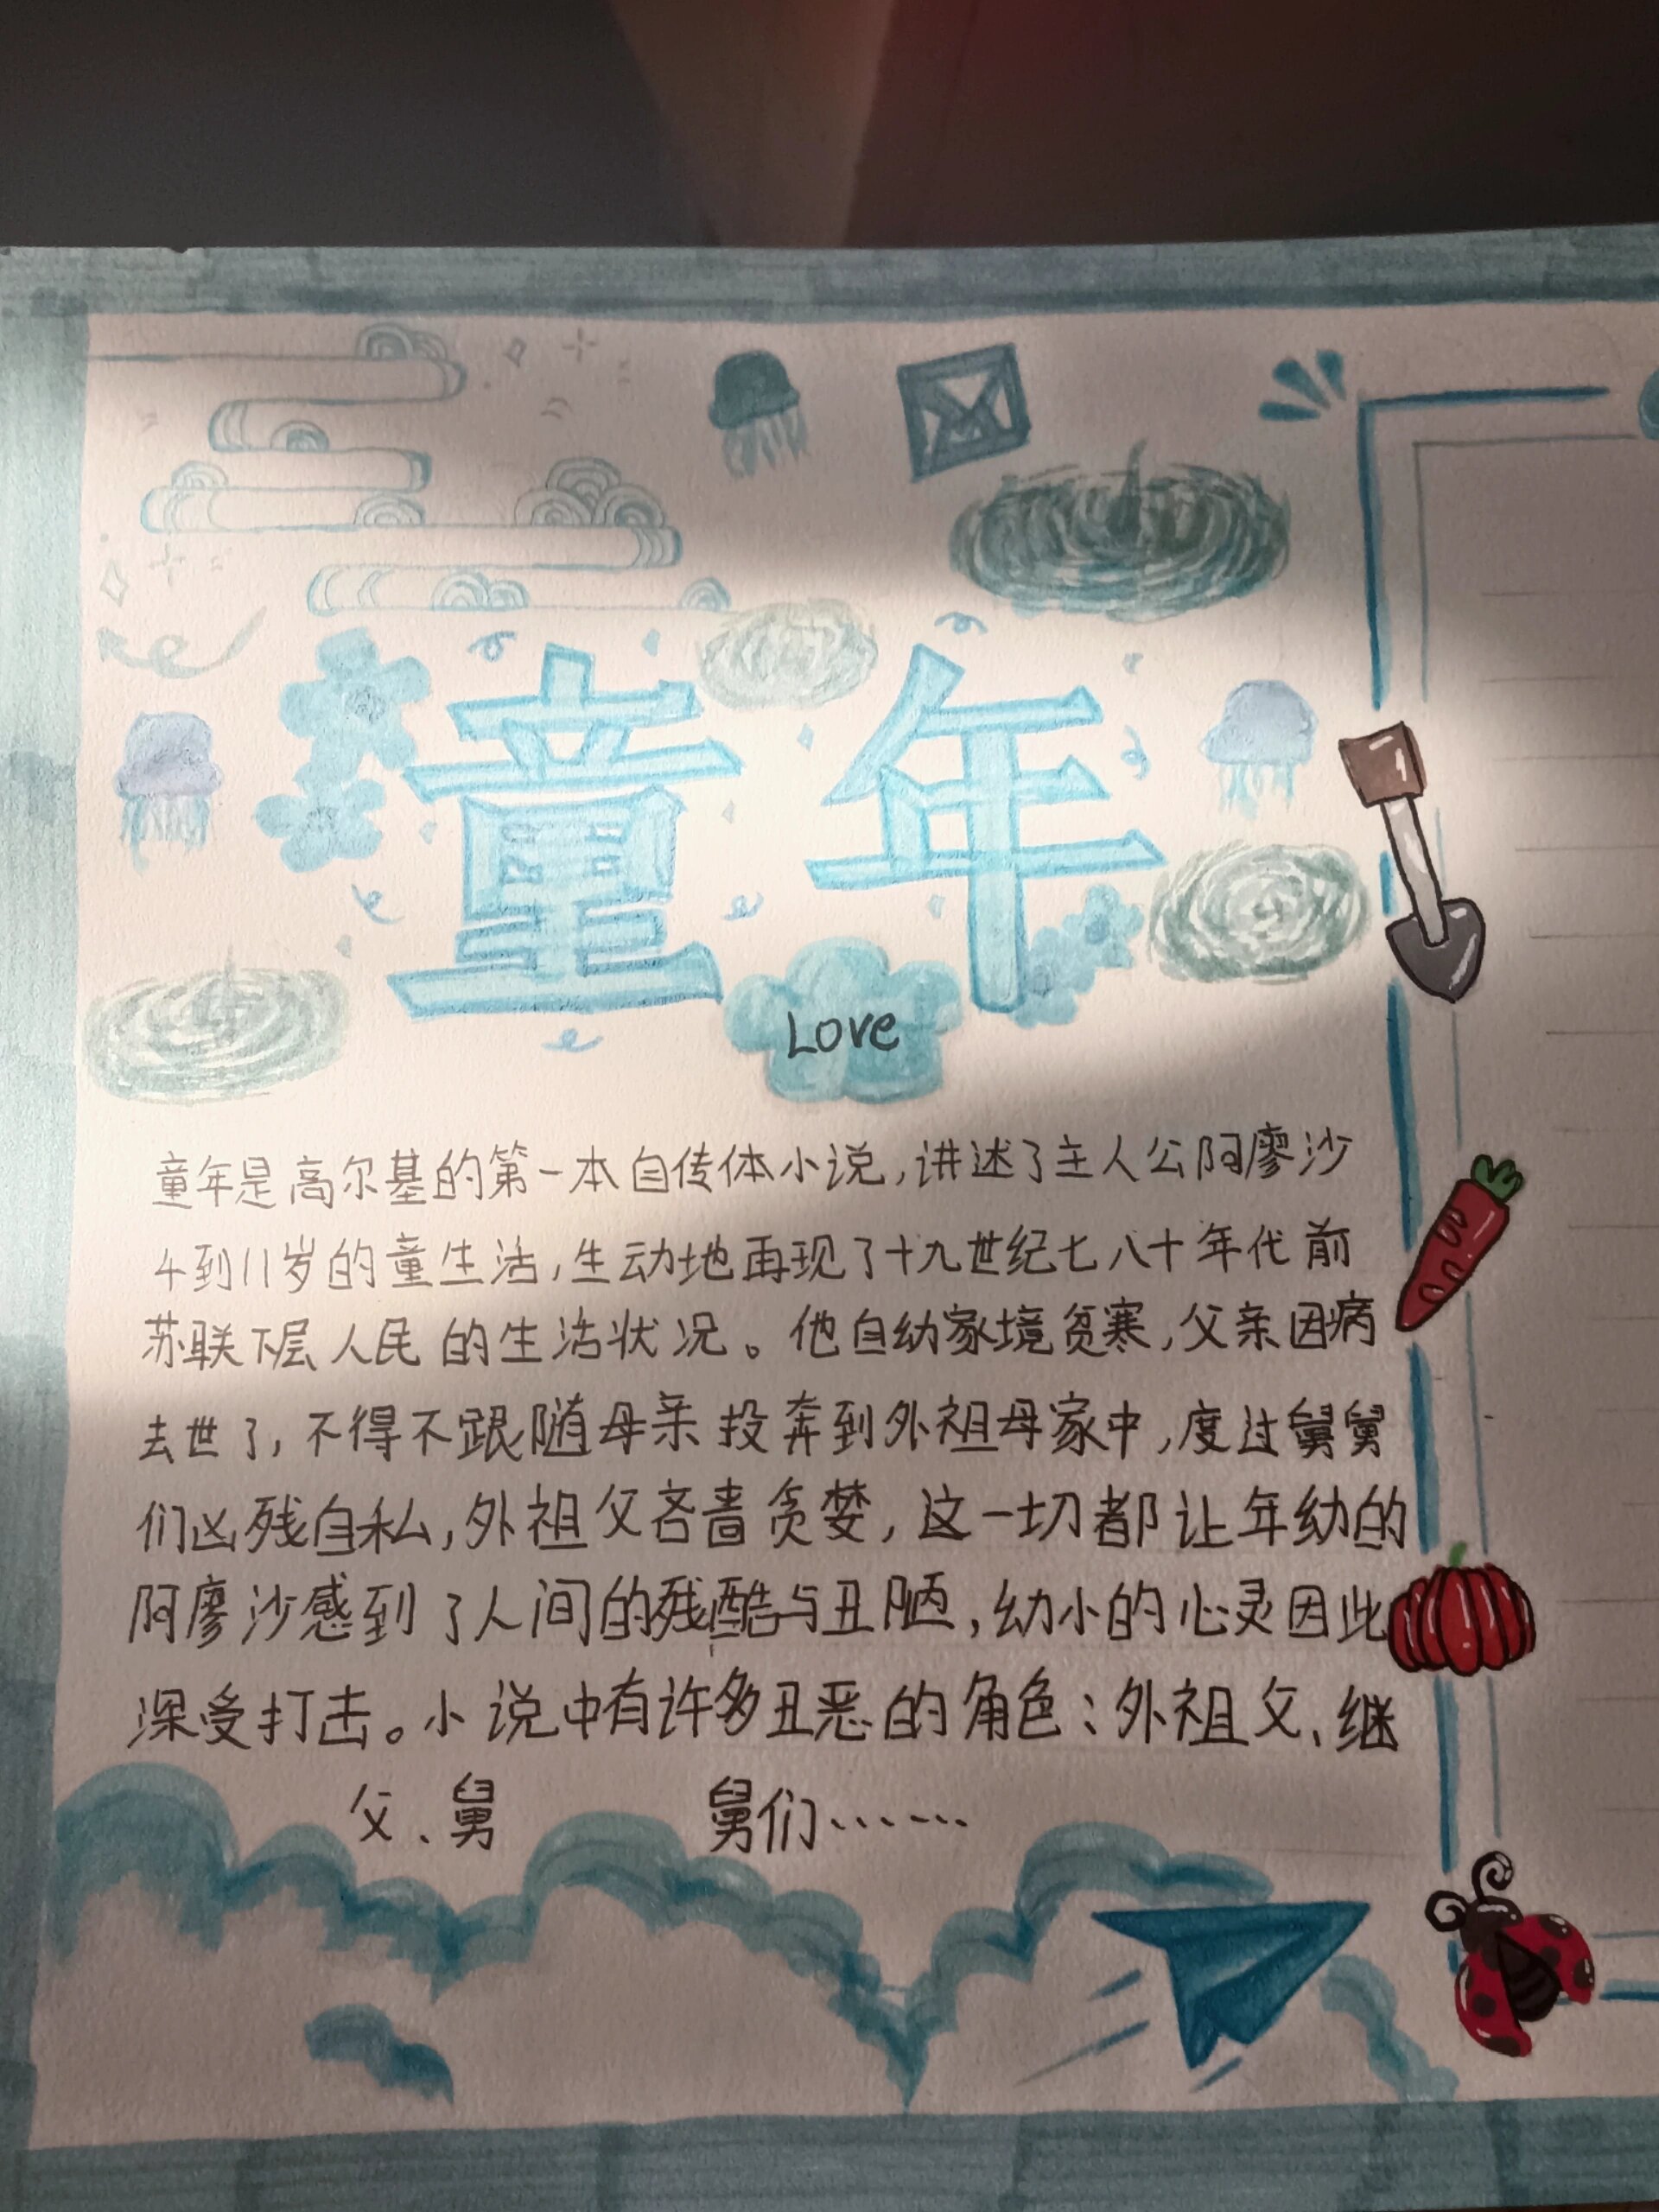 童年
Love
童年是高尔基的第一本自传体小说,讲述了主人公阿廖沙
4到11岁的童生活,生动地再现了十九世纪七八十年代前
苏联下层人民的生活状况。他自幼家境贫寒,父亲因病
去世了,不得不跟随母亲投奔到外祖母家中,度过舅舅
们凶残自私,外祖父吝啬贪婪,这一切都让年幼的
阿廖沙感到了人间的残酷与丑陋,幼小的心灵因此
深受打击。小说中有许多丑恶的角色:外祖父、继
父、舅 舅们……